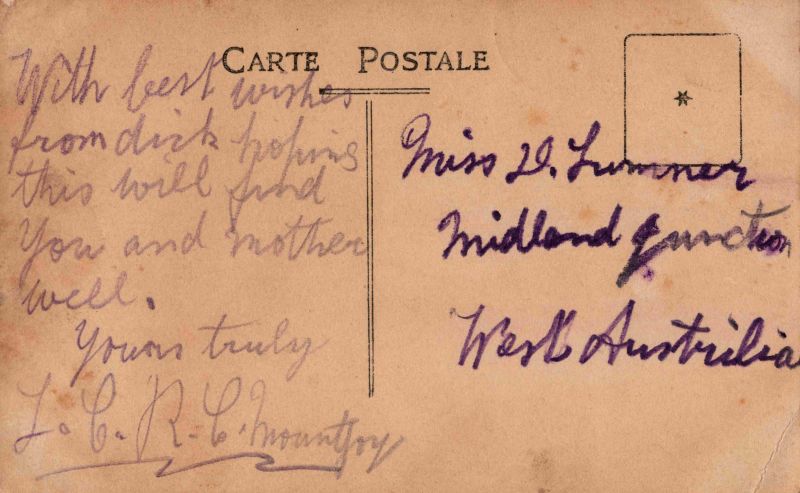 CARTE POSTALE
With best wishes
from dick hoping
this will find
you and mother
well.
Yours truly
L. C. R. C. Mountjoy
Miss D. Lumner
Midland Junction
West Austrilia